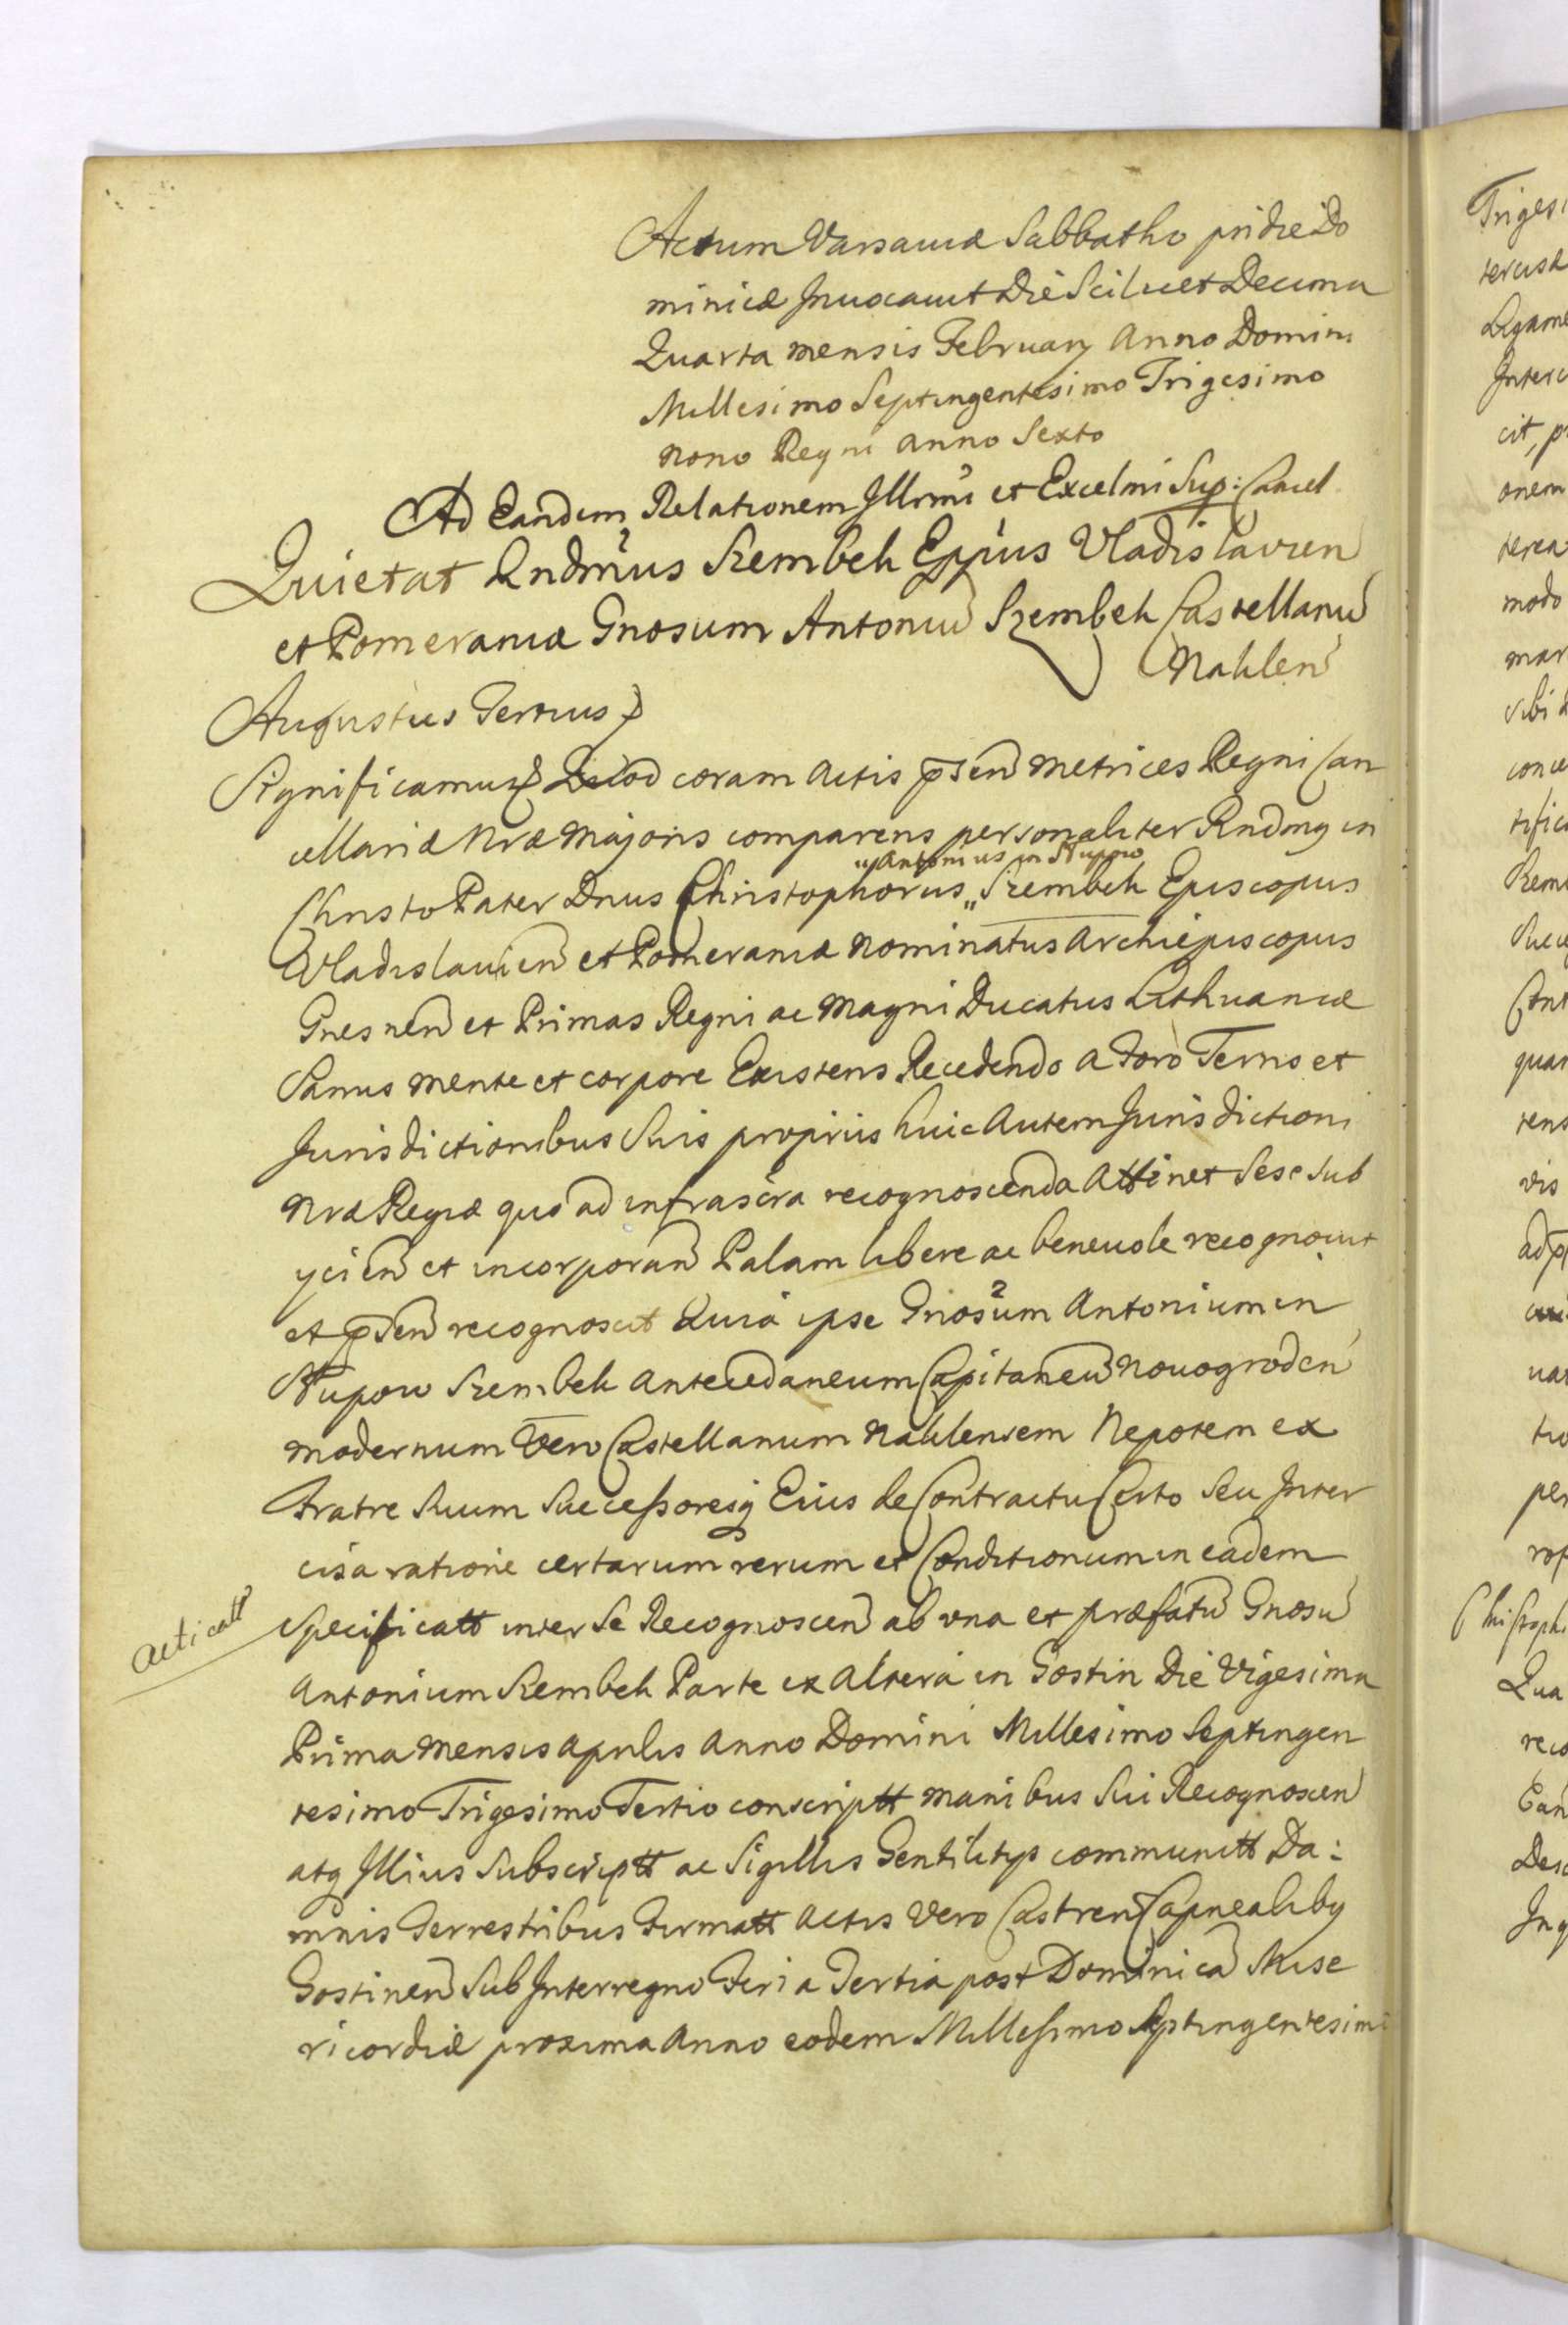 Actum Varsaviæ Sabbatho pridie Do
minicæ Invocavit Die Scilicet Decima
Quarta mensis February Anno Domini
Millesimo Septingentesimo Trigesimo
nono Regni anno Sexto
Ad Eandem Relationem Illrmi et Excelmi Sup: Cancel
Quietat Rndmus Szembek Eppus Vladislavien
et Pomeraniæ Gnosum Antoniu Szembek Castellanu
Naklen
Augustus Tertius
Significamus Quod coram Actis psen Metrices Regni Can
cellariæ Nræ Majoris comparens personaliter Rndmg in
"Antonius in Słupow
Christo Pater Dnus Christophorus „ Szembek Episcopus
Vladislavien et Pomeraniæ nominatus Archiepiscopus
Gnesnen et Primas Regni ac Magni Ducatus Lithuaniæ
Sanus mente et corpore Existens Recedendo a Foro Terrio et
Jurisdictionibus Suis proprijs huic Autem Jurisdictioni
Nræ Regiæ quo ad infrascra recognoscenda Attinet Sese Sub
ycien et incorporan Palam libere ac benevole recognovit
et psen recognoscit Quia ipse Gnosum Antonium in
Słupow Szembek antecedaneum Capitaneu Novogroden
modernum Vero Castellanum Naklensem Nepotem ex
Fratre Suum Successoresq Eius de Contractu Certo Seu Inter
cisa ratione certarum rerum et Conditionum in eadem
acticatt
Specificatt inter Se Recognoscen ab una et præfatu Gnosu
Antonium Szembek Parte ex Altera in Gostin Die Vigesima
Prima Mensis Aprilis Anno Domini Millesimo Septingen
tesimo Trigesimo Tertio conscriptt manibus Sui Recognoscen
atq Illius Subscriptt ac Sigillis Gentilitys communitt Da:
mnis Terrestribus Firmatt Actis Vero Castren Capnealibg
Gostinen Sub Interregno Feria Tertia post Dominica Mise
ricordiæ proxima Anno eodem Millesimo Septingentesimo
Triges
Ligame
Interc
cit, p
onem
terea
modo
mar
sibi
conce
tifica
Szem
Succe
Cont
quar
tens
vis
per
Christoph
Qua
reco
Ean
Desc